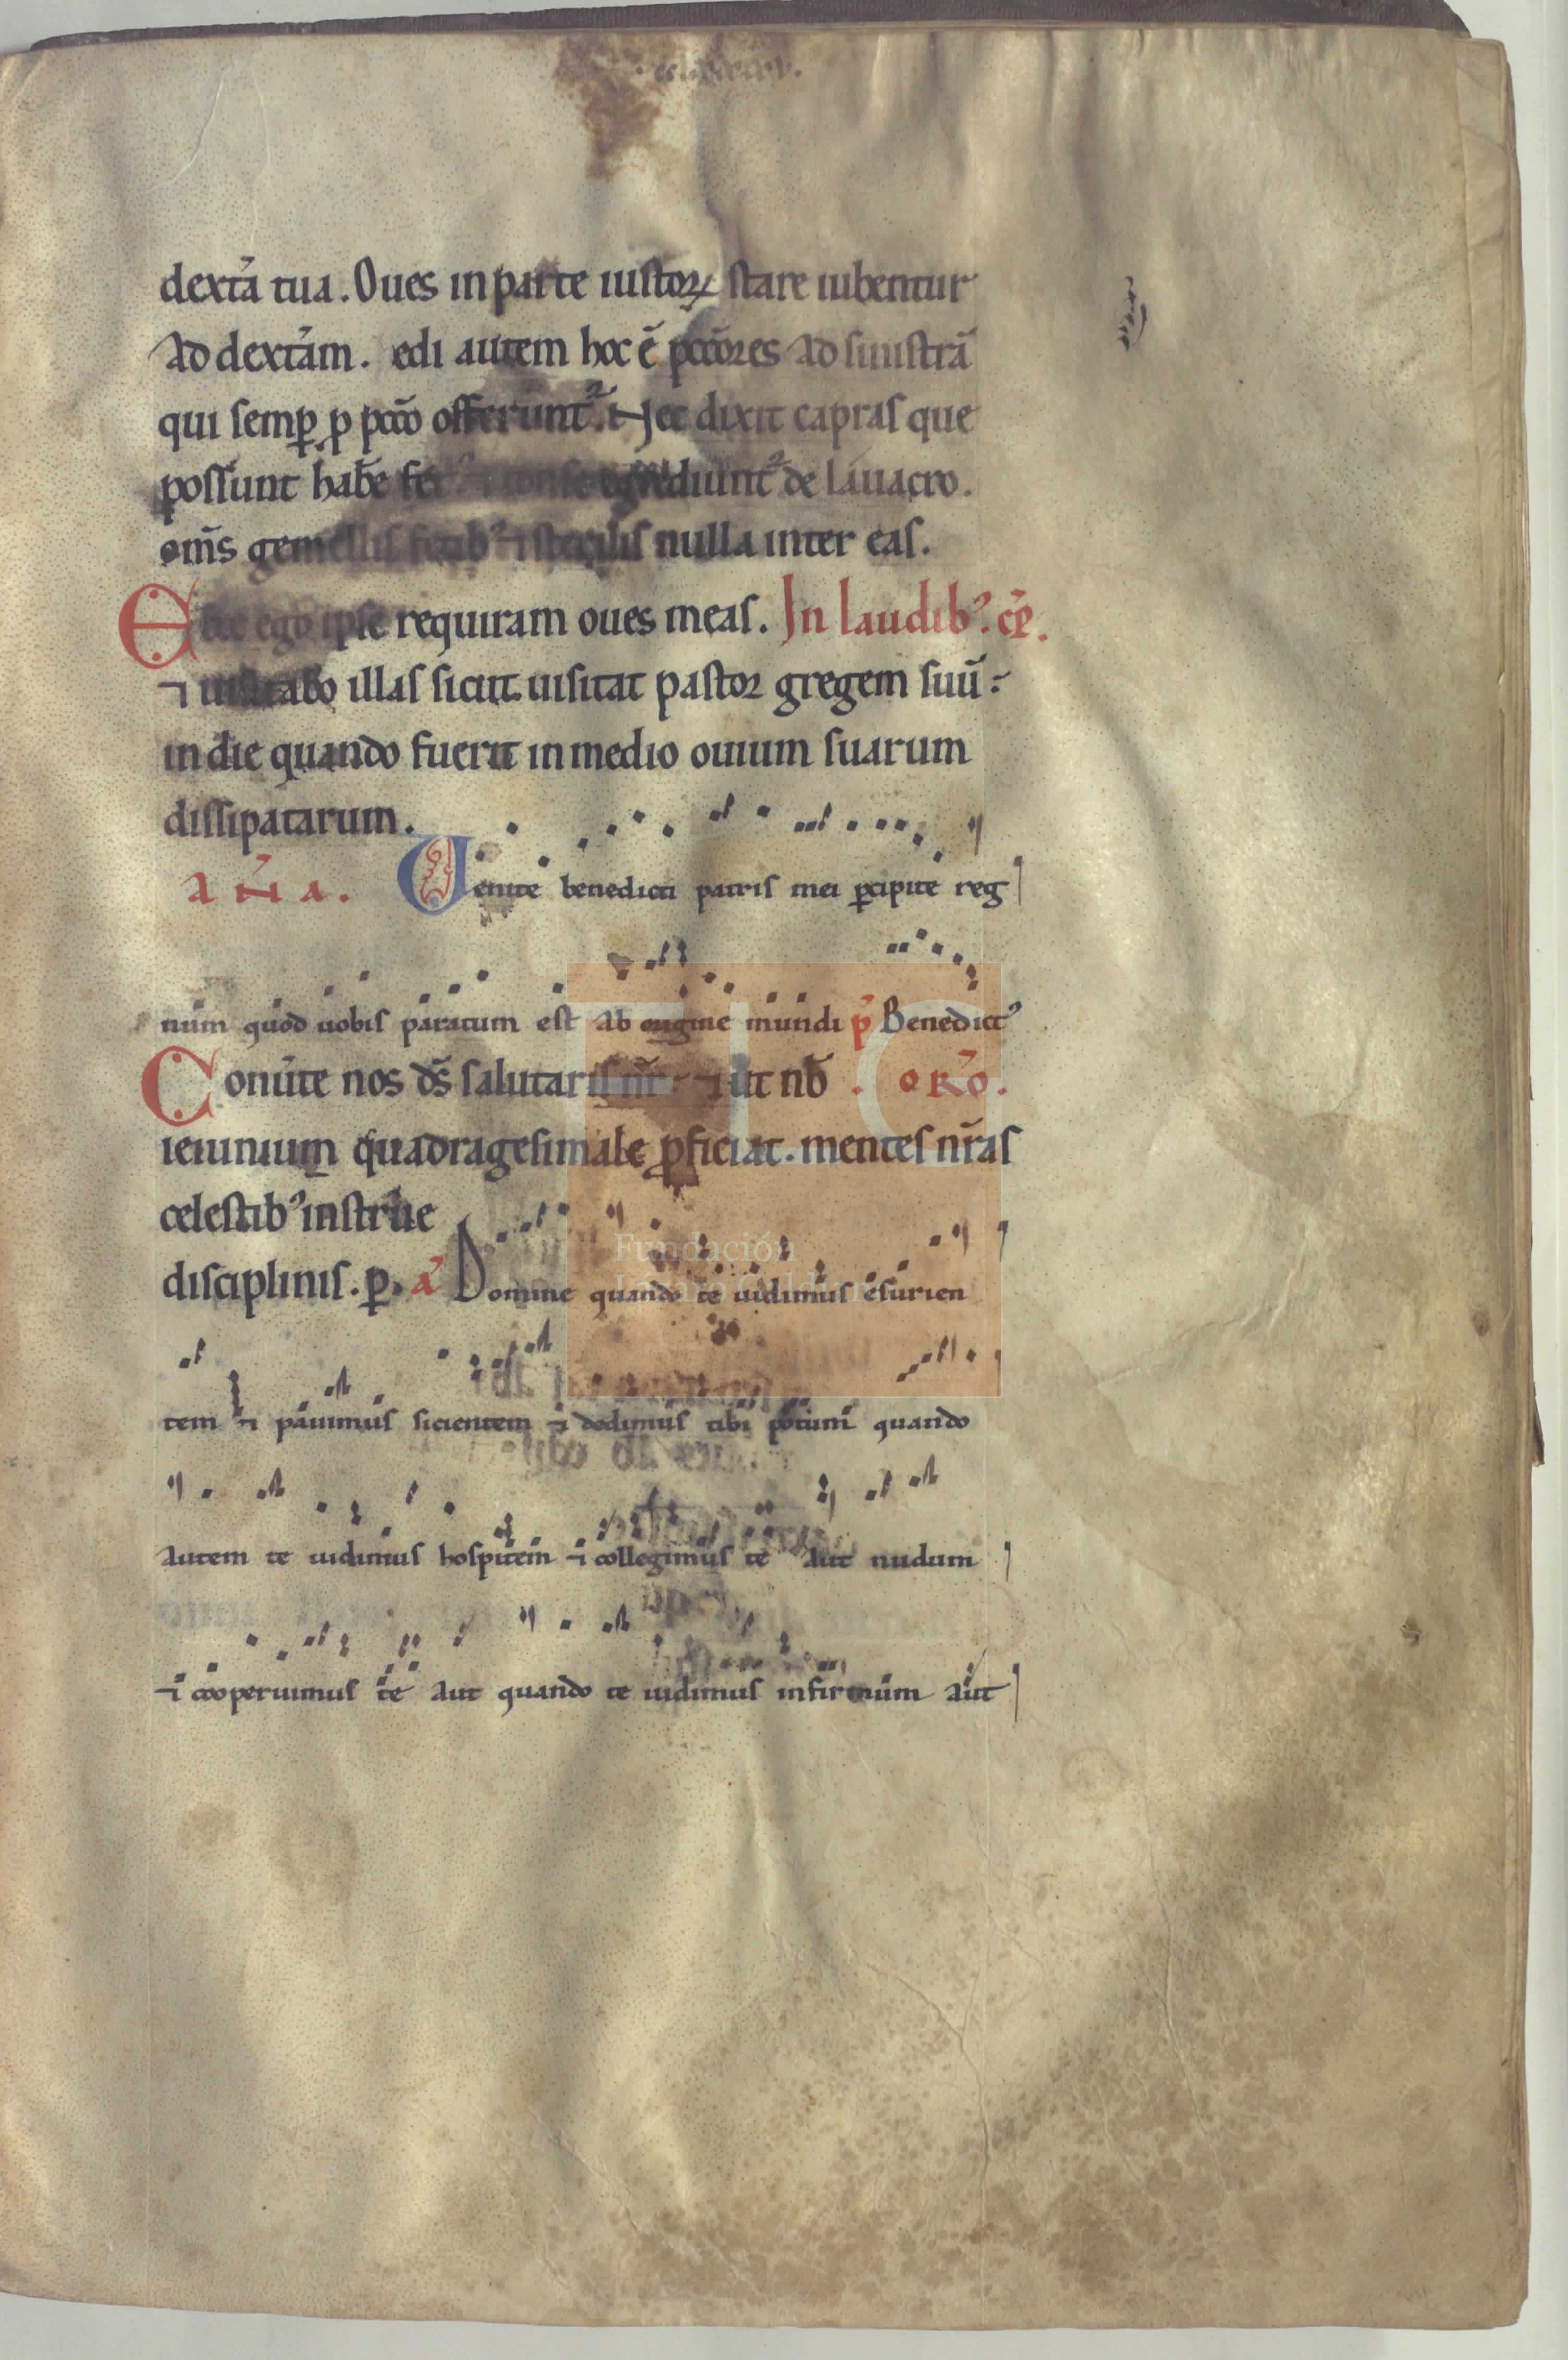 dext̃a tua. Oues in parte iustoꝝ stare iubentur
ad dext̃am. edi autem hoc ẽ pcc̃ores ad sinistrã
qui semꝑ ꝓ pcc̃o offerunt᷑. Nec dixit capras que
possunt hab̃e egrediunt᷑ de lauacro.
om̃s gemellis fetib⁹ ⁊ sterilis nulla inter eas.
Ecce ego ipse requiram oues meas. In laudib⁹. cp̃.
⁊ uisitabo illas sicut uisitat pastor gregem suũ:
in die quando fuerit in medio ouium suarum
dissipatarum.
aña. Uenite benedicti patris mei ꝑcipite reg
num quod uobis paratum est ab origine mundi p̃ Benedict⁹
Conũte nos ds̃ salutaris nr̃ ⁊ ut nob̃. oro̓.
ieiunium quadragesimale ꝓficiat. mentes nr̃as
celestib⁹ instrue
disciplinis. ꝑ. a̓ Domine quando te uidimus esurien
tem ⁊ pauimus sicientem ⁊ dedimus tibi potum quando
autem te uidimus hospitem ⁊ collegimus te aut nudum
⁊ cooperuimus te aut quando te uidimus infirmum aut
Fundación
Lázaro Galdiano